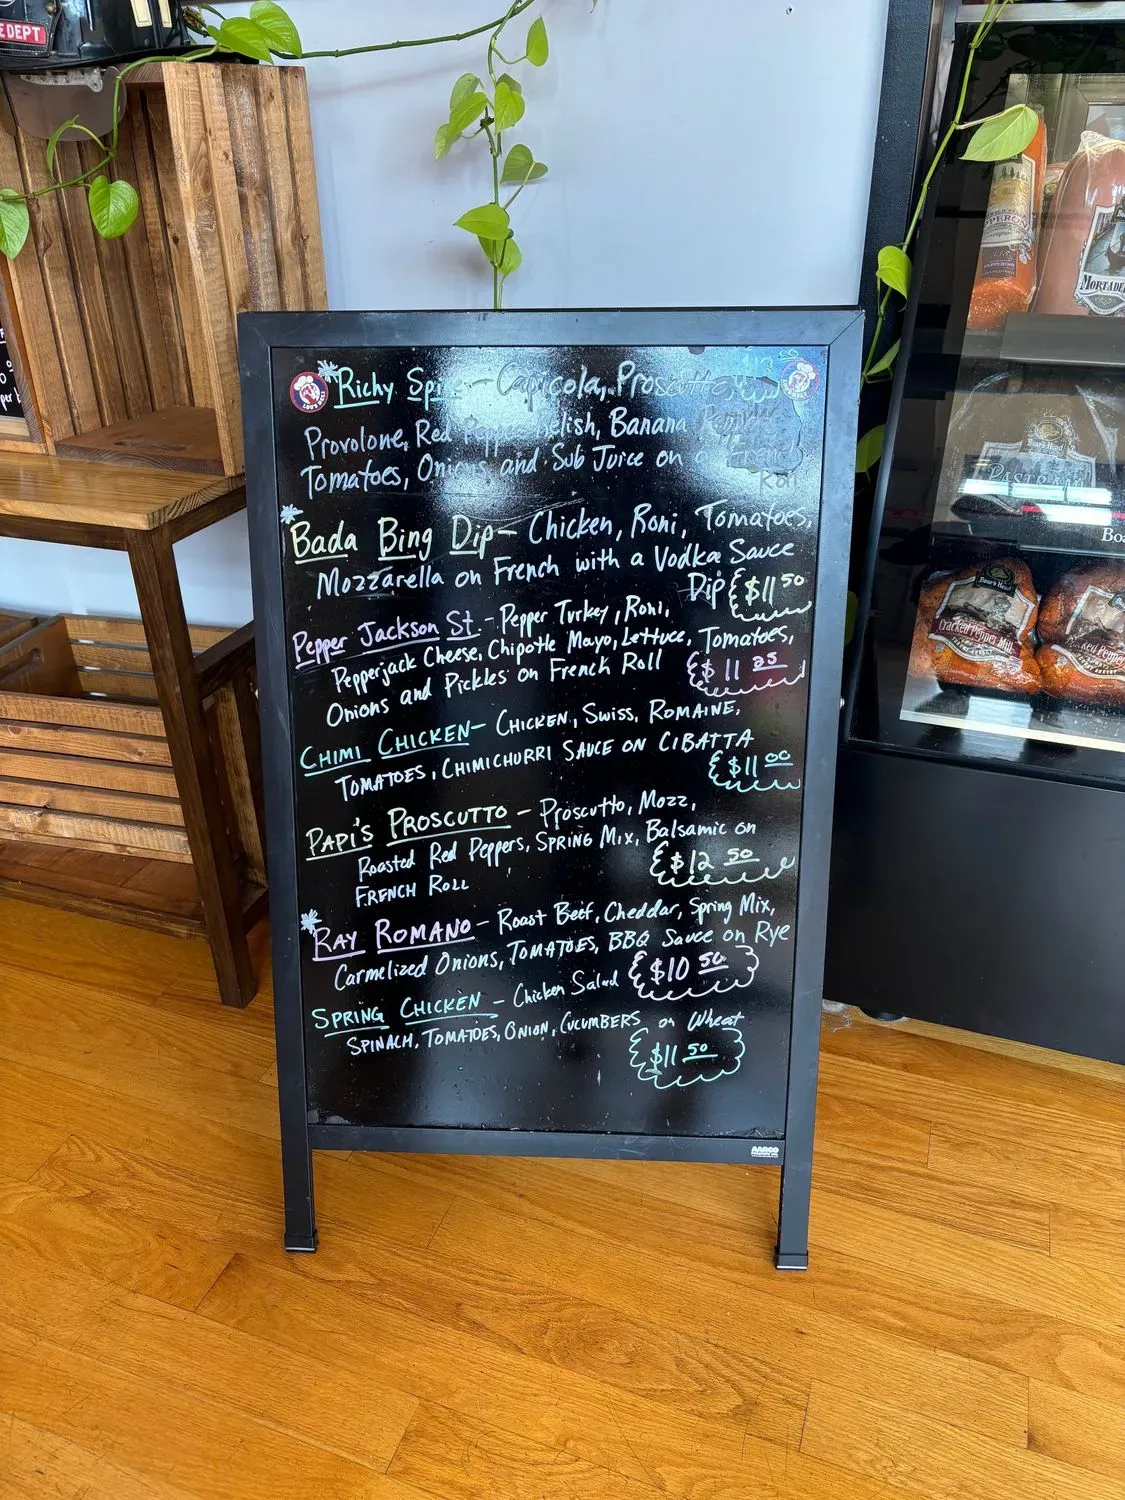 E DEPT
Richy Spice - Capicola, Prosciutto,
Provolone, Red Pepper Relish, Banana Peppers,
Tomatoes, Onions and Sub Juice on a French
Roll
Bada Bing Dip - Chicken, Roni, Tomatoes,
Mozzarella on French with a Vodka Sauce
Dip $11 50
Pepper Jackson St. - Pepper Turkey, Roni,
Pepperjack Cheese, Chipotle Mayo, Lettuce, Tomatoes,
Onions and Pickles on French Roll $11 25
CHIMI CHICKEN - CHICKEN, SWISS, ROMAINE,
TOMATOES, CHIMICHURRI SAUCE ON CIBATTA
$11 00
PAPI'S PROSCUTTO - Proscutto, Mozz,
Roasted Red Peppers, SPRING MIX, Balsamic on
FRENCH ROLL $12 50
RAY ROMANO - Roast Beef, Cheddar, Spring Mix,
Carmelized Onions, TOMATOES, BBQ Sauce on Rye
$10 50
SPRING CHICKEN - Chicken Salad
SPINACH, TOMATOES, ONION, CUCUMBERS on Wheat
$11 50
AARCO
MORTADE
Boar's Head
Cracked Pepper Mill